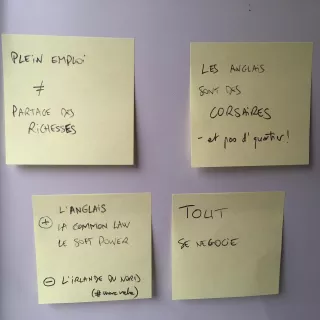 PLEIN EMPLOI
≠
PARTAGE DES
RICHESSES
LES ANGLAIS
SONT DES
CORSAIRES
- et pas d'quartier!
L'ANGLAIS
+ LA COMMON LAW
LE SOFT POWER
- L'IRLANDE DU NORD
TOUT
SE NEGOCIE